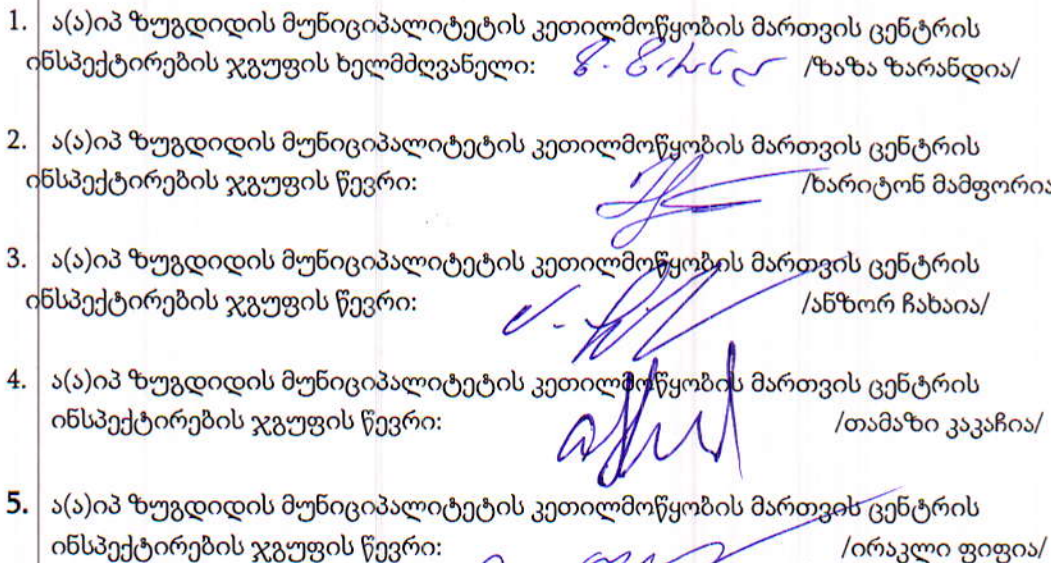 1. ა(ა)იპ ზუგდიდის მუნიციპალიტეტის კეთილმოწყობის მართვის ცენტრის
ინსპექტირების ჯგუფის ხელმძღვანელი: /ზაზა ზარანდია/
2. ა(ა)იპ ზუგდიდის მუნიციპალიტეტის კეთილმოწყობის მართვის ცენტრის
ინსპექტირების ჯგუფის წევრი: /ხარიტონ მამფორია
3. ა(ა)იპ ზუგდიდის მუნიციპალიტეტის კეთილმოწყობის მართვის ცენტრის
ინსპექტირების ჯგუფის წევრი: /ანზორ ჩახაია/
4. ა(ა)იპ ზუგდიდის მუნიციპალიტეტის კეთილმოწყობის მართვის ცენტრის
ინსპექტირების ჯგუფის წევრი: /თამაზი კაკაჩია/
5. ა(ა)იპ ზუგდიდის მუნიციპალიტეტის კეთილმოწყობის მართვის ცენტრის
ინსპექტირების ჯგუფის წევრი: /ირაკლი ფიფია/